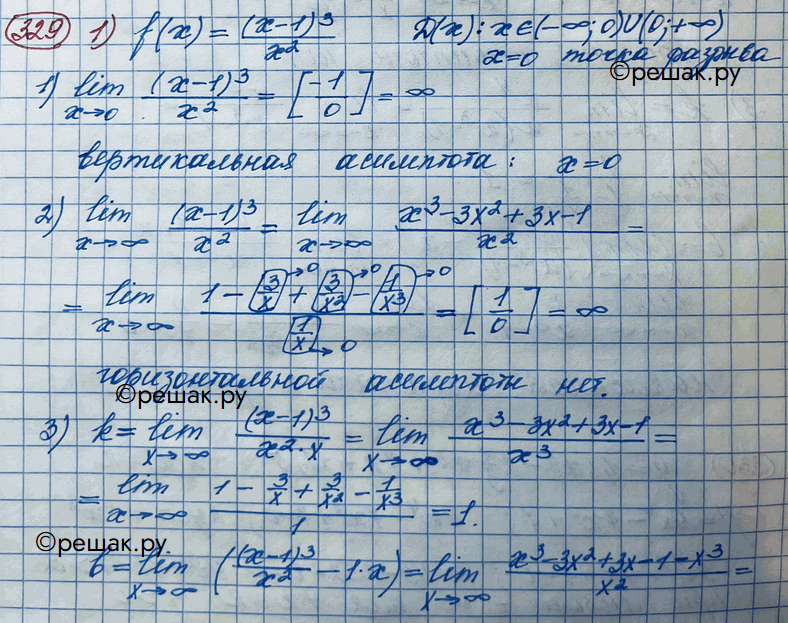 329 1) f(x) = (x-1)³/x² D(x): x∈(-∞;0)∪(0;+∞)
x=0 точка разрыва
©решак.ру
1) lim x→0 (x-1)³/x² = [-1/0] = ∞
вертикальная асимптота: x=0
2) lim x→∞ (x-1)³/x² = lim x→∞ (x³-3x²+3x-1)/x² =
= lim x→∞ (1 - 3/x→0 + 3/x²→0 - 1/x³→0)/(1/x→0) = [1/0] = ∞
горизонтальной асимптоты нет.
©решак.ру
3) k = lim x→∞ (x-1)³/(x²·x) = lim x→∞ (x³-3x²+3x-1)/x³ =
= lim x→∞ (1 - 3/x + 3/x² - 1/x³)/1 = 1.
©решак.ру
b = lim x→∞ ((x-1)³/x² - 1·x) = lim x→∞ (x³-3x²+3x-1-x³)/x² =